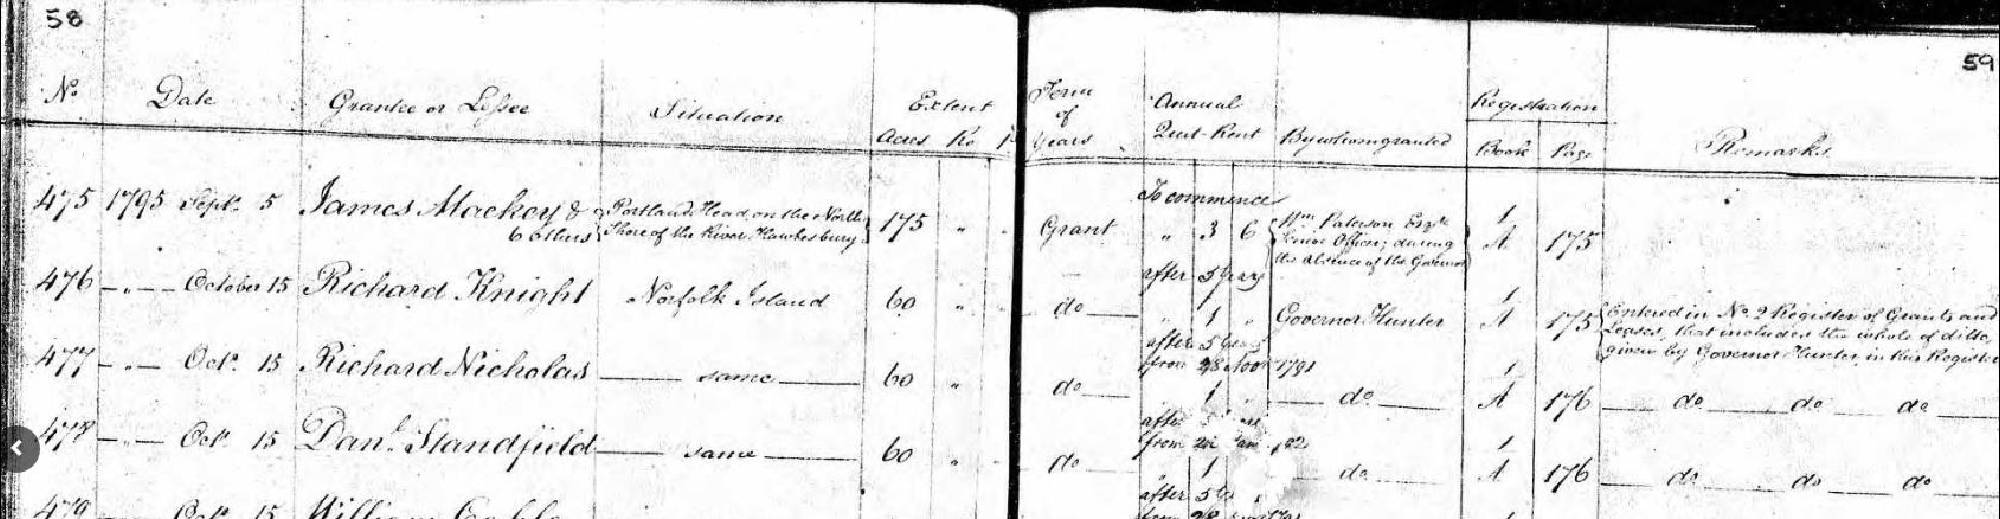 58
59
No. Date Grantee or Lessee Situation Extent Term of Years Annual Quit-Rent By whom granted Registration Remarks
Acres Ro P Book Page
475 1795 Sept. 5 James Mackey & 6 others Portland Head, on the North Shore of the River Hawkesbury 175 " Grant To commence " 3 6 after 5 years Wm. Paterson Esqre. Senior Officer, during the absence of the Governor 1 A 175
476 — " — October 15 Richard Knight Norfolk Island 60 " do " 1 " after 5 years from 28 Novr 1791 Governor Hunter 1 A 175 Entered in No. 2 Register of Grants and Leases, that includes the whole of ditto given by Governor Hunter in this Register
477 — " — Oct. 15 Richard Nicholas — same — 60 " do " 1 " after from — do — 1 A 176 — do — do — do —
478 — " — Oct. 15 Danl. Standfield — same — 60 " do " 1 after 5 from 28 do — 1 A 176 — do — do — do —
479 Oct. 15 William